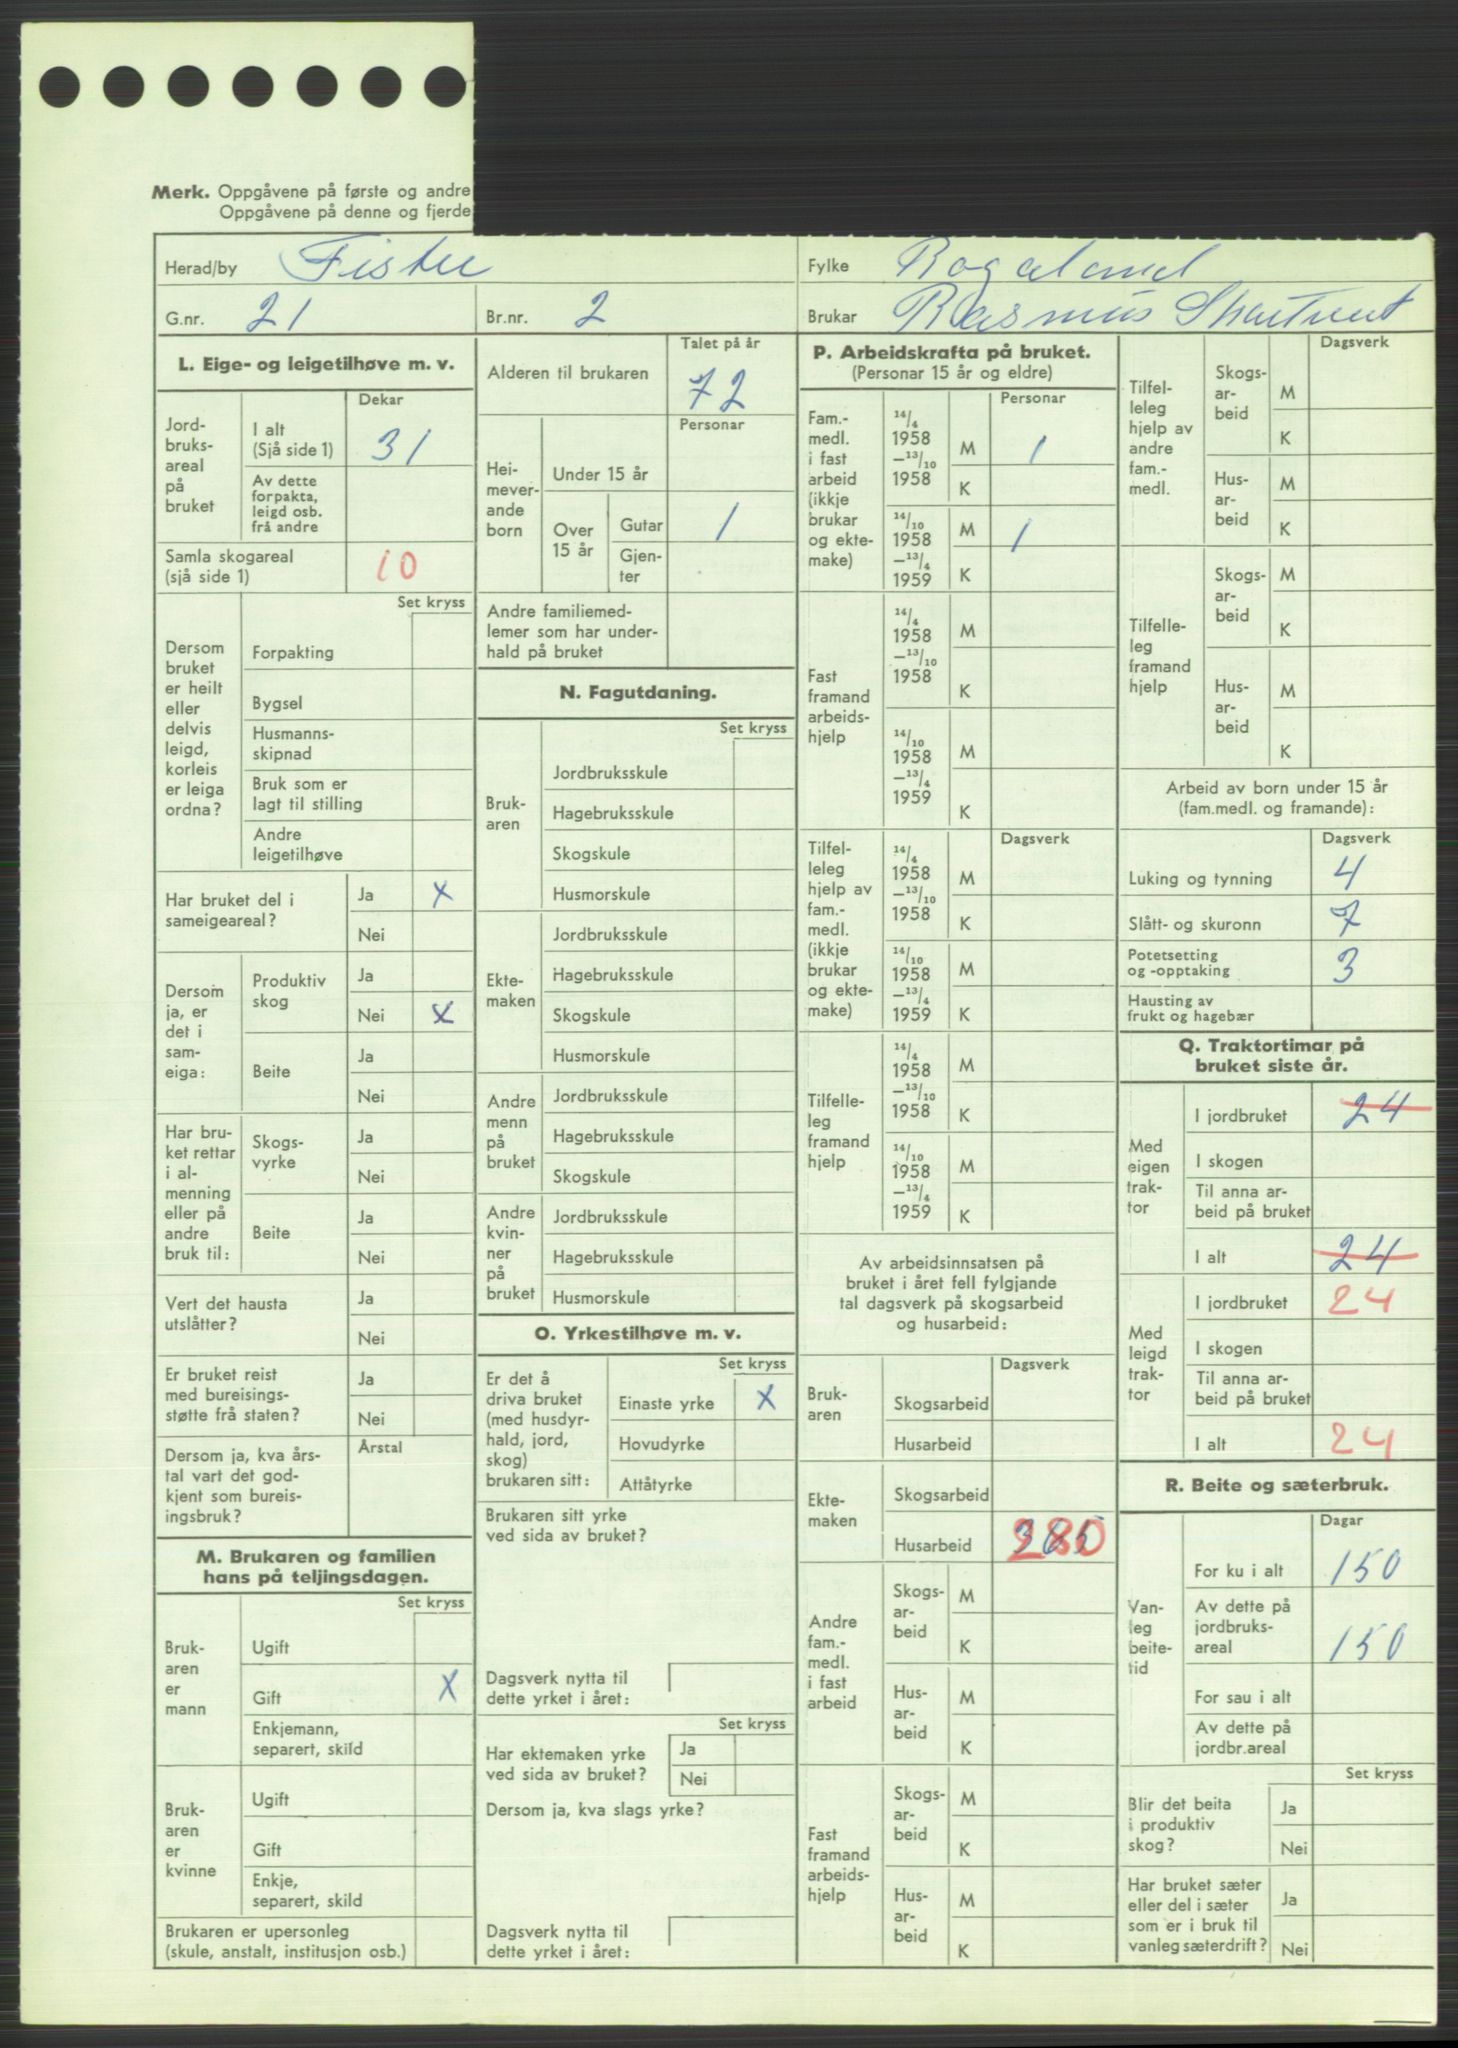 Merk. Oppgåvene på første og andre
Oppgåvene på denne og fjerde
Herad/by Fister
Fylke Rogaland
G.nr. 21
Br.nr. 2
Brukar Rasmus
L. Eige- og leigetilhøve m. v.
Dekar
Jord-
bruks-
areal
på
bruket
I alt
(Sjå side 1) 31
Av dette
forpakta,
leigd osb.
frå andre
Samla skogareal
(sjå side 1) 10
Set kryss
Dersom
bruket
er heilt
eller
delvis
leigd,
korleis
er leiga
ordna?
Forpakting
Bygsel
Husmanns-
skipnad
Bruk som er
lagt til stilling
Andre
leigetilhøve
Har bruket del i
sameigeareal?
Ja x
Nei
Dersom
ja, er
det i
sam-
eiga:
Produktiv
skog
Ja
Nei x
Beite
Ja
Nei
Har bru-
ket rettar
i al-
menning
eller på
andre
bruk til:
Skogs-
vyrke
Ja
Nei
Beite
Ja
Nei
Vert det hausta
utslåtter?
Ja
Nei
Er bruket reist
med bureisings-
støtte frå staten?
Ja
Nei
Dersom ja, kva års-
tal vart det god-
kjent som bureis-
ingsbruk?
Årstal
M. Brukaren og familien
hans på teljingsdagen.
Set kryss
Bruk-
aren
er
mann
Ugift
Gift X
Enkjemann,
separert, skild
Bruk-
aren
er
kvinne
Ugift
Gift
Enkje,
separert, skild
Brukaren er upersonleg
(skule, anstalt, institusjon osb.)
Talet på år
Alderen til brukaren 72
Personar
Hei-
mever-
ande
born
Under 15 år
Over
15 år
Gutar 1
Gjen-
ter
Andre familiemed-
lemer som har under-
hald på bruket
N. Fagutdaning.
Set kryss
Bruk-
aren
Jordbruksskule
Hagebruksskule
Skogskule
Husmorskule
Ekte-
maken
Jordbruksskule
Hagebruksskule
Skogskule
Husmorskule
Andre
menn
på
bruket
Jordbruksskule
Hagebruksskule
Skogskule
Andre
kvin-
ner
på
bruket
Jordbruksskule
Hagebruksskule
Husmorskule
O. Yrkestilhøve m. v.
Set kryss
Er det å
driva bruket
(med husdyr-
hald, jord,
skog)
brukaren sitt:
Einaste yrke x
Hovudyrke
Attåtyrke
Brukaren sitt yrke
ved sida av bruket?
Dagsverk nytta til
dette yrket i året:
Set kryss
Har ektemaken yrke
ved sida av bruket?
Ja
Nei
Dersom ja, kva slags yrke?
Dagsverk nytta til
dette yrket i året:
P. Arbeidskrafta på bruket.
(Personar 15 år og eldre)
Personar
Fam.-
medl.
i fast
arbeid
(ikkje
brukar
og ekte-
make)
14/4
1958
—13/10
1958
M 1
K
14/10
1958
—13/4
1959
M 1
K
Fast
framand
arbeids-
hjelp
14/4
1958
—13/10
1958
M
K
14/10
1958
—13/4
1959
M
K
Dagsverk
Tilfel-
leleg
hjelp av
fam.-
medl.
(ikkje
brukar
og ekte-
make)
14/4
1958
—13/10
1958
M
K
14/10
1958
—13/4
1959
M
K
Tilfelle-
leg
framand
hjelp
14/4
1958
—13/10
1958
M
K
14/10
1958
—13/4
1959
M
K
Av arbeidsinnsatsen på
bruket i året fell fylgjande
tal dagsverk på skogsarbeid
og husarbeid:
Dagsverk
Bruk-
aren
Skogsarbeid
Husarbeid
Ekte-
maken
Skogsarbeid
Husarbeid 280
Andre
fam.-
medl.
i fast
arbeid
Skogs-
ar-
beid
M
K
Hus-
ar-
beid
M
K
Fast
framand
arbeids-
hjelp
Skogs-
ar-
beid
M
K
Hus-
ar-
beid
M
K
Dagsverk
Tilfel-
leleg
hjelp av
andre
fam.-
medl.
Skogs-
ar-
beid
M
K
Hus-
ar-
beid
M
K
Tilfelle-
leg
framand
hjelp
Skogs-
ar-
beid
M
K
Hus-
ar-
beid
M
K
Arbeid av born under 15 år
(fam.medl. og framande):
Dagsverk
Luking og tynning 4
Slått- og skuronn 7
Potetsetting
og -opptaking 3
Hausting av
frukt og hagebær
Q. Traktortimar på
bruket siste år.
Med
eigen
trak-
tor
I jordbruket 24
I skogen
Til anna ar-
beid på bruket
I alt 24
Med
leigd
trak-
tor
I jordbruket 24
I skogen
Til anna ar-
beid på bruket
I alt 24
R. Beite og sæterbruk.
Dagar
Van-
leg
beite-
tid
For ku i alt 150
Av dette på
jordbruks-
areal 150
For sau i alt
Av dette på
jordbr.areal
Set kryss
Blir det beita
i produktiv
skog?
Ja
Nei
Har bruket sæter
eller del i sæter
som er i bruk til
vanleg sæterdrift?
Ja
Nei